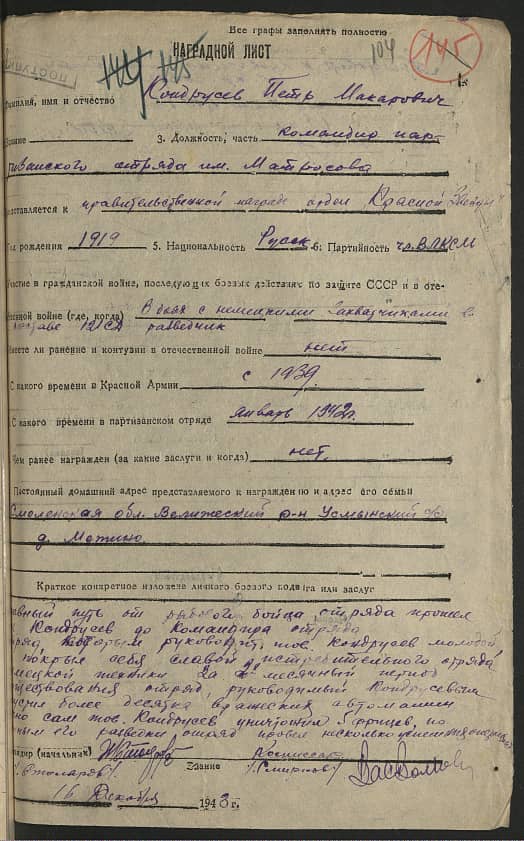 Все графы заполнять полностью
НАГРАДНОЙ ЛИСТ
104
145
Фамилия, имя и отчество Кондрусев Петр Макарович
Звание 3. Должность, часть командир пар-
тизанского отряда им. Матросова
Представляется к правительственной награде орден Красной Звезды
Год рождения 1919 5. Национальность Русск. 6. Партийность чл. ВЛКСМ
Участие в гражданской войне, последующих боевых действиях по защите СССР и в оте-
чественной войне (где, когда) В боях с немецкими захватчиками в
составе разведчик
Имеете ли ранение и контузии в отечественной войне нет
С какого времени в Красной Армии с 1939.
С какого времени в партизанском отряде январь 1942г.
Чем ранее награжден (за какие заслуги и когда) нет.
Постоянный домашний адрес представляемого к награждению и адрес его семьи
Смоленская обл. Велижский р-н Усмынский с/с
д.
Краткое конкретное изложение личного боевого подвига или заслуг
путь от рядового бойца отряда прошел
Кондрусев до Командира отряда
которым руководит тов. Кондрусев молодой
покрыл себя славой истребительного отряда
немецкой техники за месячный период
существования отряд, руководимый Кондрусевым
более десятка вражеских автомашин
сам тов. Кондрусев уничтожил фрицев, по
его разведки отряд провел несколько
Командир (начальник) Комиссар
/Столяров/ Звание /Смирнов/
16 Декабря 1943г.